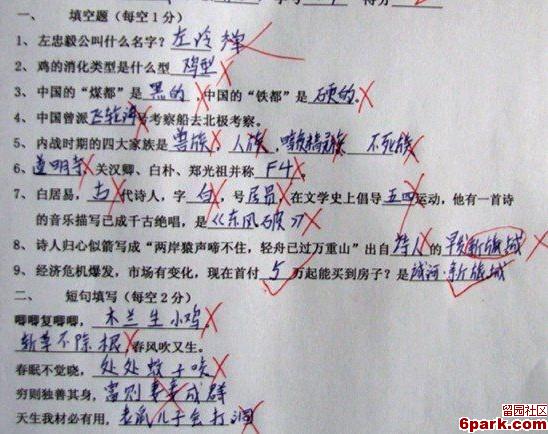 一、 填空题（每空1分）
1、左忠毅公叫什么名字？左冷禅
2、鸡的消化类型是什么型 鸡型
3、中国的“煤都”是 黑的，中国的“铁都”是 硬的。
4、中国曾派飞轮海号考察船去北极考察。
5、内战时期的四大家族是 兽族，人族，暗夜精灵族 不死族
6、道明寺 关汉卿、白朴、郑光祖并称 F4。
7、白居易，古 代诗人，字 白，号 居易，在文学史上倡导 五四 运动，他有一首诗
的音乐描写已成千古绝唱，是《东风破》
8、诗人归心似箭写成“两岸猿声啼不住，轻舟已过万重山”出自 诗人 的 早发新旅城
9、经济危机爆发，市场有变化，现在首付 5 万起能买到房子？是 新旅城
二、 短句填写（每空2分）
唧唧复唧唧，木兰生小鸡。
斩草不除根，春风吹又生。
春眠不觉晓，处处蚊子咬
穷则独善其身，富则妻妾成群
天生我材必有用，老鼠儿子会打洞
留园社区
6park.com